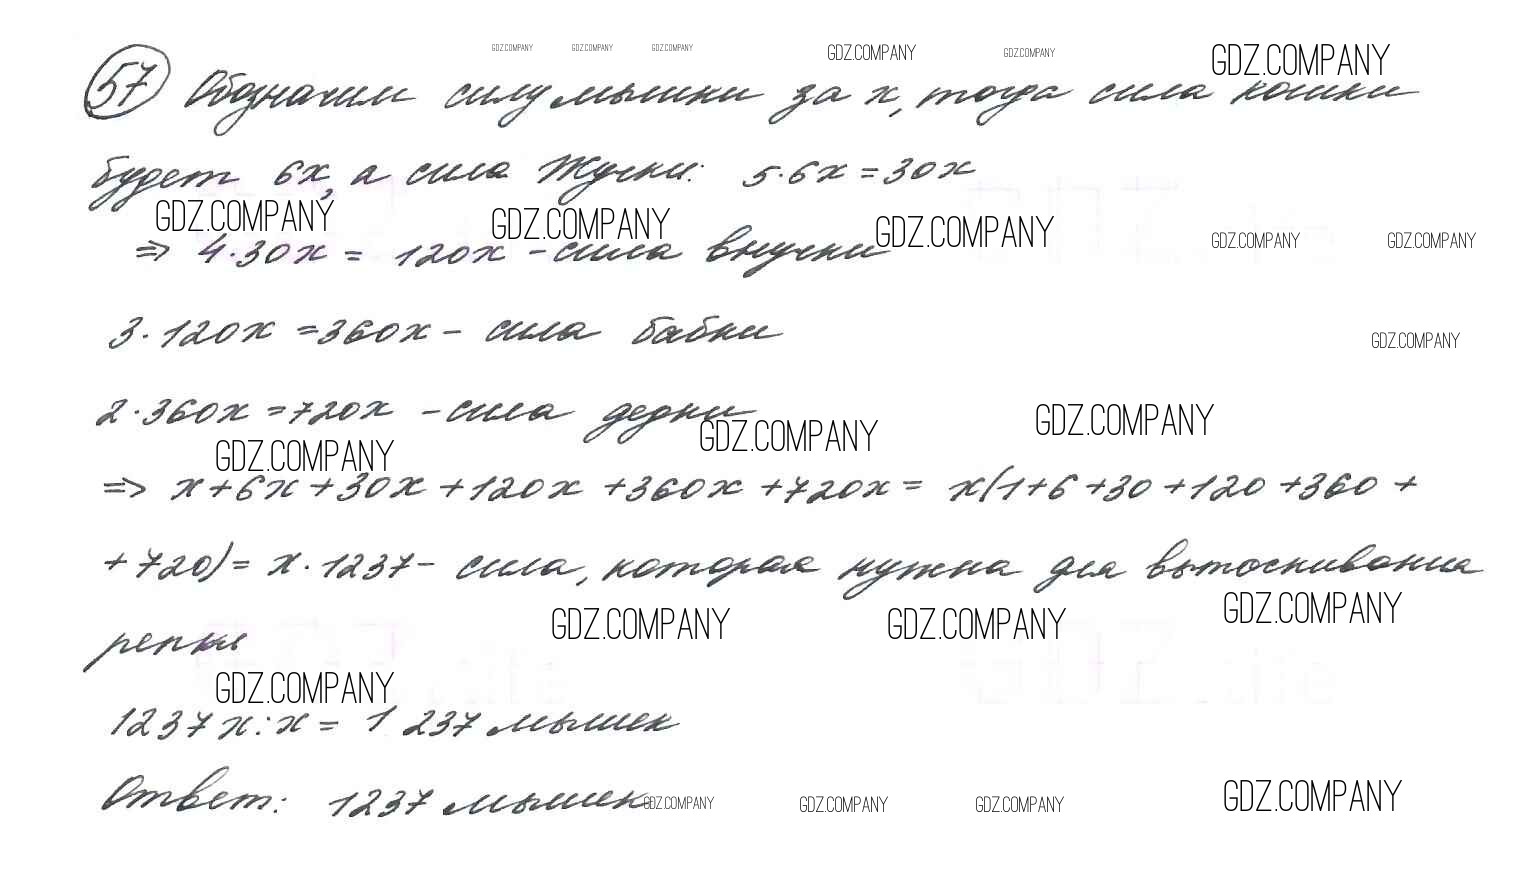 GDZ.COMPANY GDZ.COMPANY GDZ.COMPANY GDZ.COMPANY GDZ.COMPANY GDZ.COMPANY
57 Обозначим силу мышки за x, тогда сила кошки
будет 6x, а сила Жучки: 5·6x=30x
GDZ.COMPANY GDZ.COMPANY GDZ.COMPANY GDZ.COMPANY GDZ.COMPANY
=> 4·30x = 120x - сила внучки
3·120x =360x - сила бабки
GDZ.COMPANY
2·360x =720x - сила дедки
GDZ.COMPANY GDZ.COMPANY GDZ.COMPANY
=> x+6x+30x+120x+360x+720x= x(1+6+30+120+360+
+720)= x·1237- сила, которая нужна для вытоскивания
GDZ.COMPANY GDZ.COMPANY GDZ.COMPANY
репки
GDZ.COMPANY
1237x:x= 1 237 мышек
Ответ: 1237 мышек
GDZ.COMPANY GDZ.COMPANY GDZ.COMPANY GDZ.COMPANY